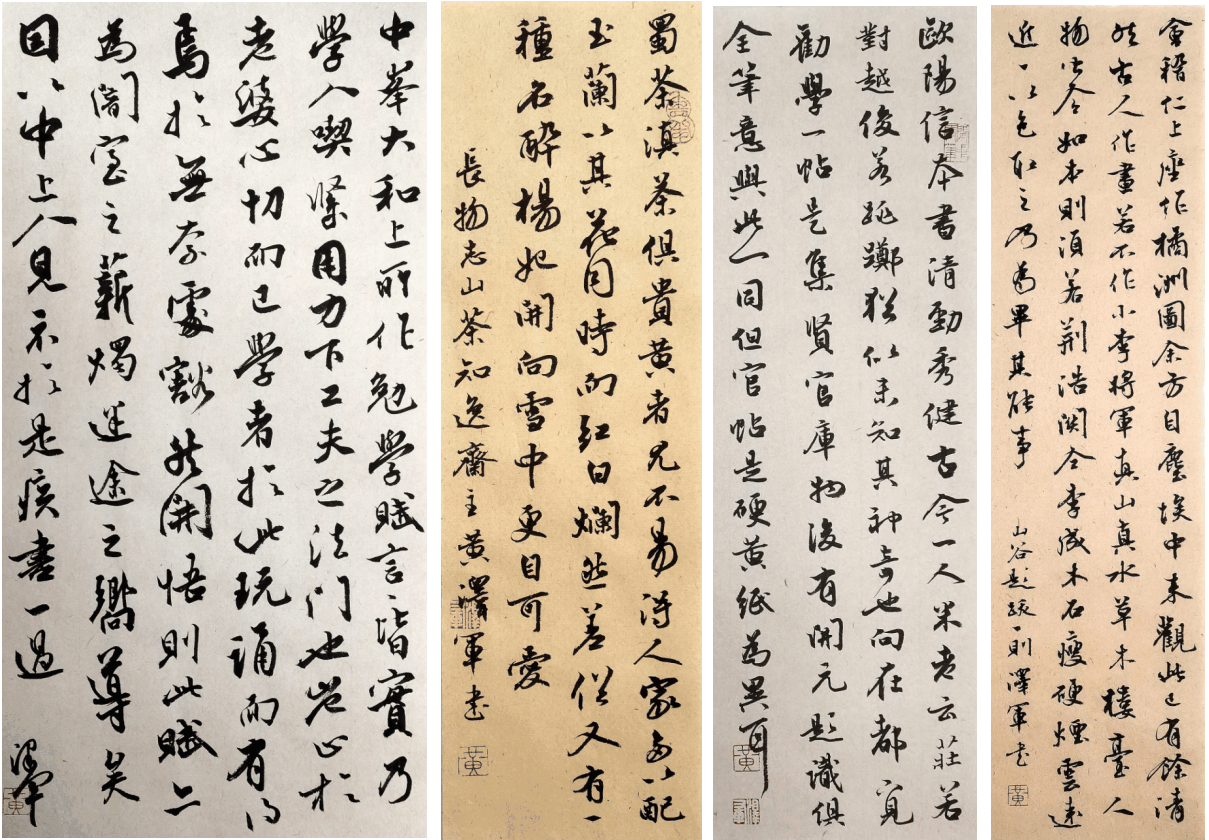 中峯大和上所作勉學賦言言皆實乃
學人喫緊用力下工夫之法門也豈止於
老婆心切而已學者於此玩誦而有得
焉於無奈處豁然開悟則此賦亦
為闇室之薪燭迷途之嚮導矣
因以中上人見示於是疾書一過 澤軍
黃
蜀茶滇茶俱貴黃者尤不易得人家多以配
玉蘭以其花同時而紅白爛然差俗又有一
種名醉楊妃開向雪中更自可愛
長物志山茶知逸齋主黃澤軍書
黃
歐陽信本書清勁秀健古今一人米老云莊若
對越俊若跳躑猶似未知其神奇也向在都覓
勸學一帖是集賢官庫物後有開元題識俱
全筆意與此一同但官帖是硬黃紙為異耳
黃
會稽仁上座作橘洲圖余方自塵埃中來觀此已有餘清
然古人作畫若不作小李將軍真山真水草木樓臺人
物皆令如本則須若荊浩關仝李成木石瘦硬煙雲遠
近一以色取之乃為畢其能事 山谷題跋一則澤軍書
黃